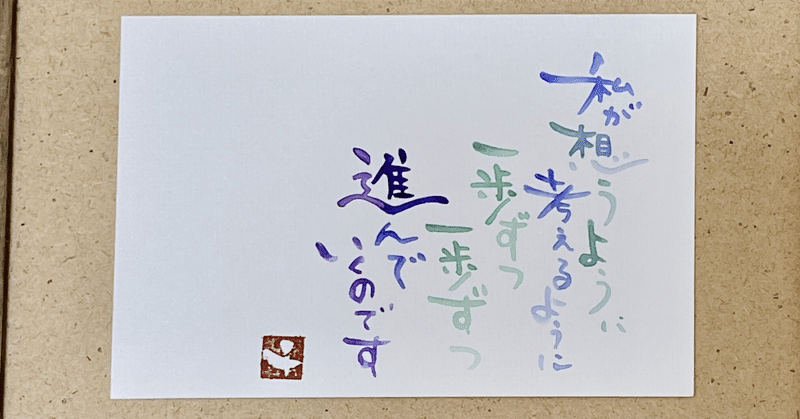 私が想うように
考えるように
一歩ずつ
一歩ずつ
進んで
いくのです